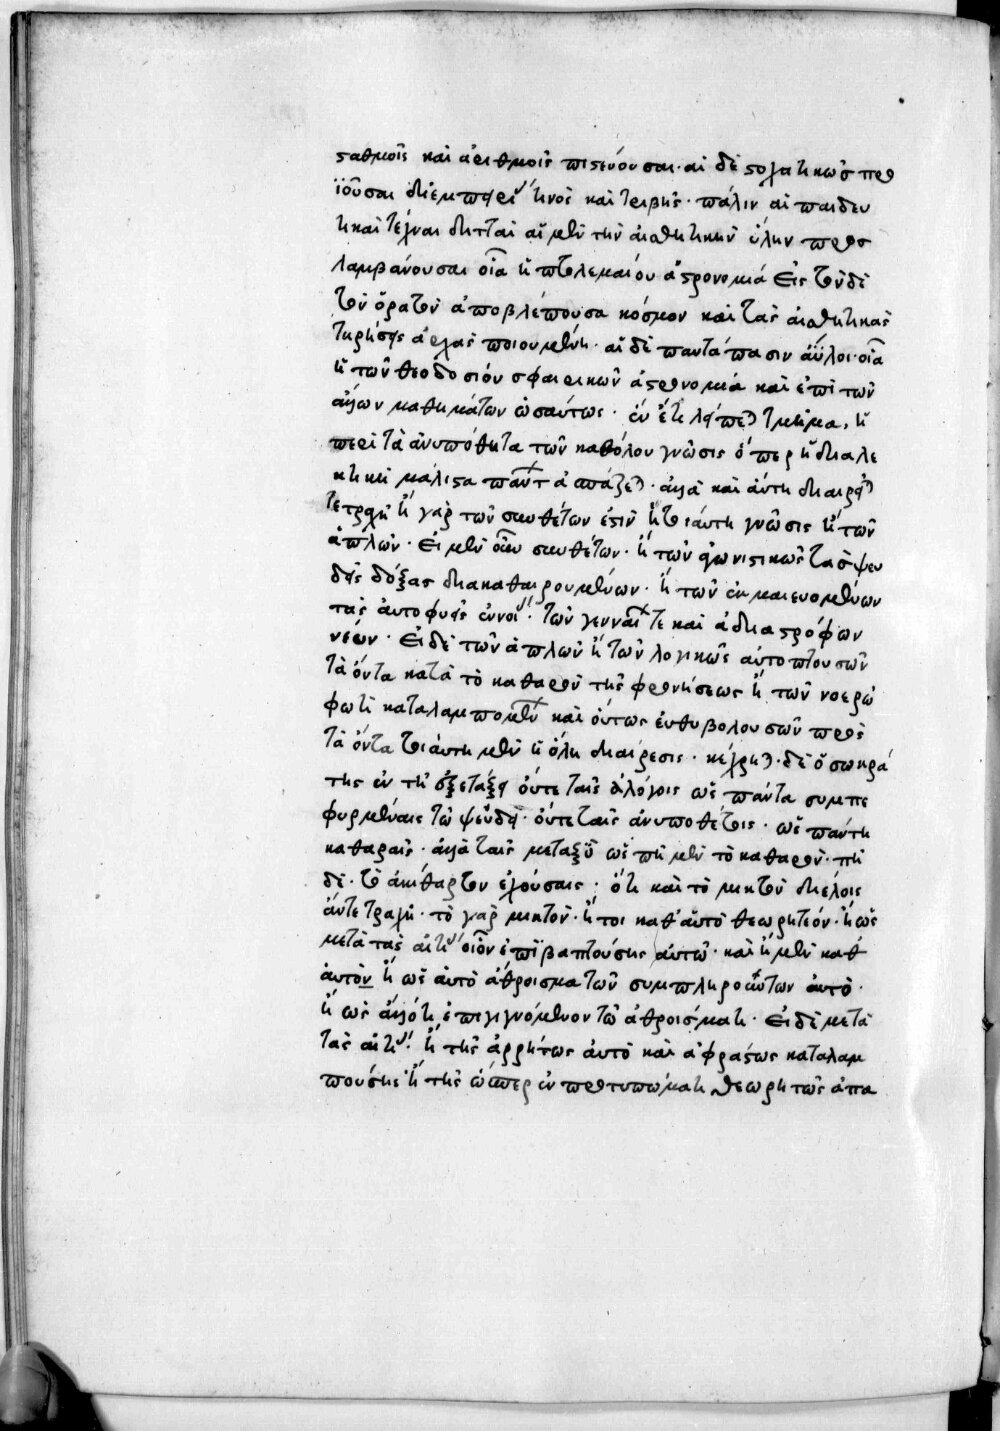 σταθμοῖς καὶ ἀριθμοῖς πιστεύουσαι· αἱ δὲ στοχαστικῶς προ
ϊοῦσαι δι' ἐμπειρίας τινὸς καὶ τριβῆς· πάλιν αἱ παιδευ
τικαὶ τέχναι διτταὶ αἱ μὲν τὴν αἰσθητικὴν ὕλην προσ
λαμβάνουσαι οἷα ἡ πτολεμαίου ἀστρονομία εἰς τόνδε
τὸν ὁρατὸν ἀποβλέπουσα κόσμον καὶ τὰς αἰσθητικὰς
τηρήσεις ἀρχὰς ποιουμένη· αἱ δὲ παντάπασιν ἄϋλοι· οἷα
ἡ τῶν θεοδοσίου σφαιρικῶν ἀστρονομία καὶ ἐπὶ τῶν
ἄλλων μαθημάτων ὡσαύτως· ἓν ἔτι λείπεται τμῆμα, ἡ
περὶ τὰ ἀνυπόθετα τῶν καθόλου γνῶσις ὅπερ ἡ διαλε
κτικὴ μάλιστα πάντων ἀσπάζεται· ἀλλὰ καὶ αὕτη διαιρεῖται
τετραχῆ ἢ γὰρ τῶν συνθέτων ἐστὶν ἡ τοιαύτη γνῶσις ἢ τῶν
ἁπλῶν· εἰ μὲν οὖν συνθέτων· ἢ τῶν ἀγωνιστικῶς τὰς ψευ
δεῖς δόξας διακαθαιρουμένων· ἢ τῶν ἐκμαιευομένων
τὰς αὐτοφυεῖς ἐννοίας· τῶν γενναίων τε καὶ ἀδιαστρόφων
νέων· εἰ δὲ τῶν ἁπλῶν ἢ τῶν λογικῶς αὐτοπτουσῶν
τὰ ὄντα κατὰ τὸ καθαρὸν τῆς φρονήσεως ἢ τῶν νοερῷ
φωτὶ καταλαμπομένων καὶ οὕτως εὐθυβολουσῶν πρὸς
τὰ ὄντα τοιαύτη μὲν ἡ ὅλη διαίρεσις· κέχρηται δὲ ὁ σωκρά
της ἐν τῇ ἐξετάξει οὔτε ταῖς ἀλόγοις ὡς πάντα συμπε
φυρμέναις τῷ ψεύδει· οὔτε ταῖς ἀνυποθέτοις· ὡς πάντη
καθαραῖς· ἀλλὰ ταῖς μεταξὺ ὡς πῆ μὲν τὸ καθαρὸν· πῆ
δὲ· τὸ ἀκάθαρτον ἐχούσαις; ὅτι καὶ τὸ μικτὸν διέλοις
ἄν τετραχῆ· τὸ γὰρ μικτὸν· ἤτοι καθ' αὑτὸ θεωρητέον· ἢ ὡς
μετὰ τὰς αἰτίας οἷον ἐπιβαπτούσης αὐτῷ· καὶ ἢ μὲν καθ
αὑτὸν ἢ ὡς αὐτὸ ἄθροισμα τῶν συμπληρούντων αὐτὸ·
ἢ ὡς ἄλλό τι ἐπιγιγνόμενον τῷ ἀθροίσματι· εἰ δὲ μετὰ
τὰς αἰτίας ἢ τῆς ἀρρήτως αὐτὸ καὶ ἀφράστως καταλαμ
πούσης ἢ τῆς ὥσπερ ἐν προτυπώματι θεωρητῶς ἁπα